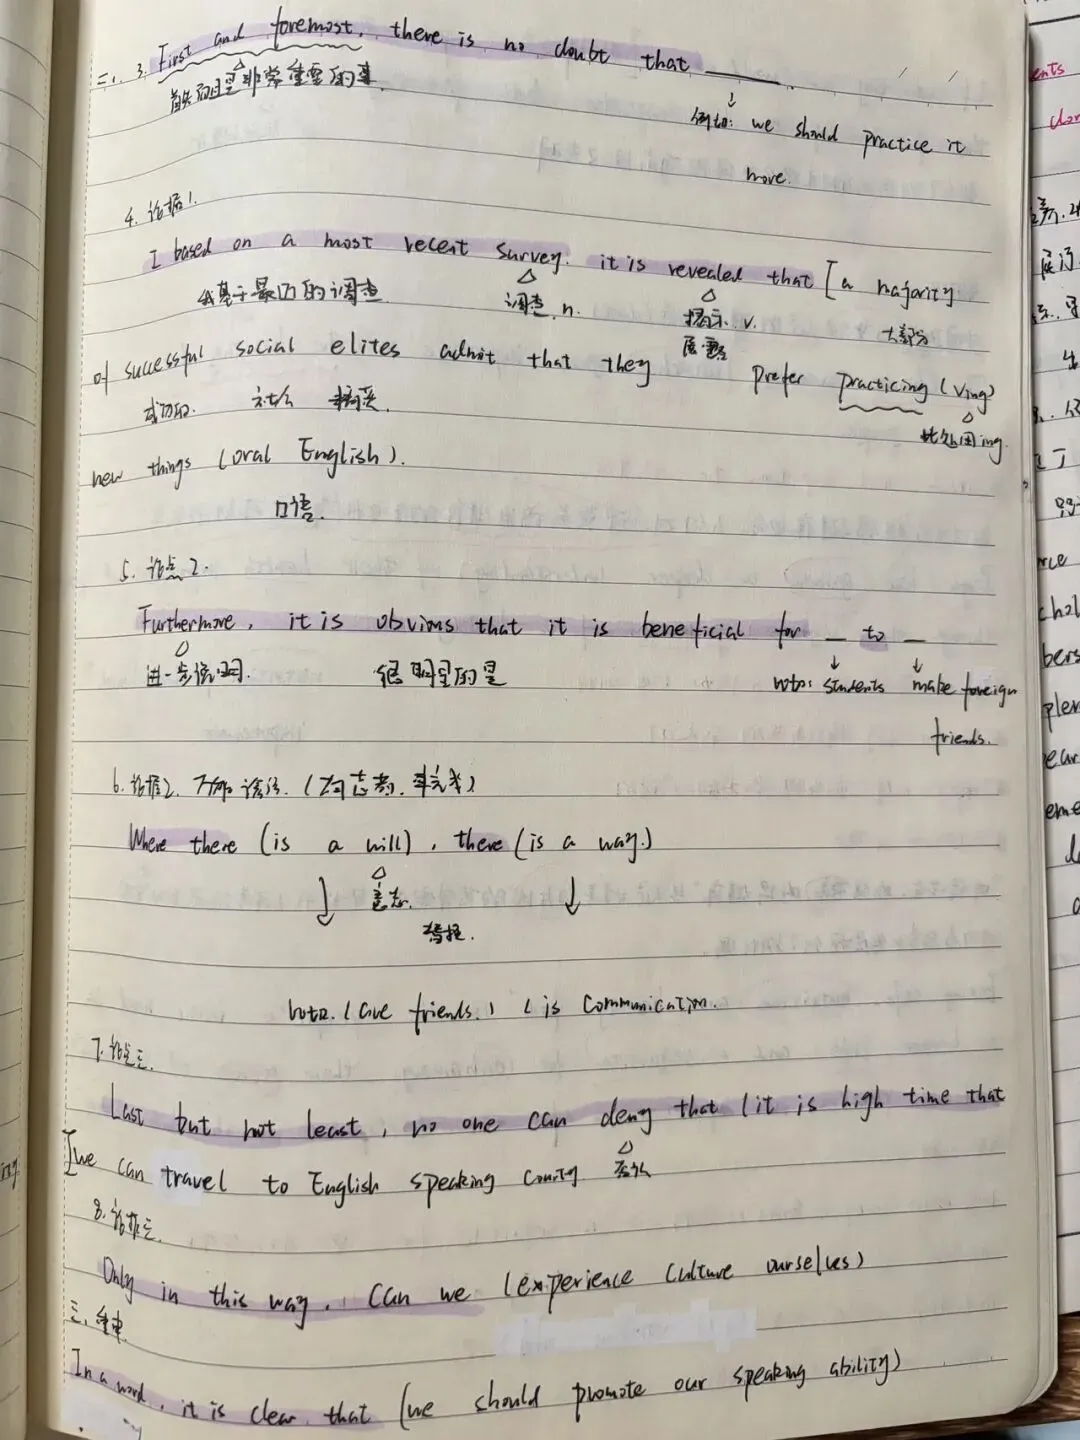 二、3. First and foremost, there is no doubt that ______.
首先而且是非常重要的事
↓
例如: we should practice it
more.
4. 论据1.
I based on a most recent survey. it is revealed that [a majority
我基于最近的调查 调查 n. 揭示 v. 大部分
展露
of successful social elites admit that they prefer practicing (Ving)
成功的. 社会 精英. 此处用ing.
new things (oral English).
口语.
5. 论点2.
Furthermore, it is obvious that it is beneficial for _ to _
进一步说明. 很明显的是 students make foreign
friends.
6. 论据2.
Where there (is a will), there (is a way.)
意志.
friends.) (is communication.
7. 论点三.
Last but not least, no one can deny that (it is high time that
we can travel to English speaking country 否认
8. 论据三.
Only in this way, can we (experience culture ourselves)
三、重申.
In a word, it is clear that (we should promote our speaking ability)